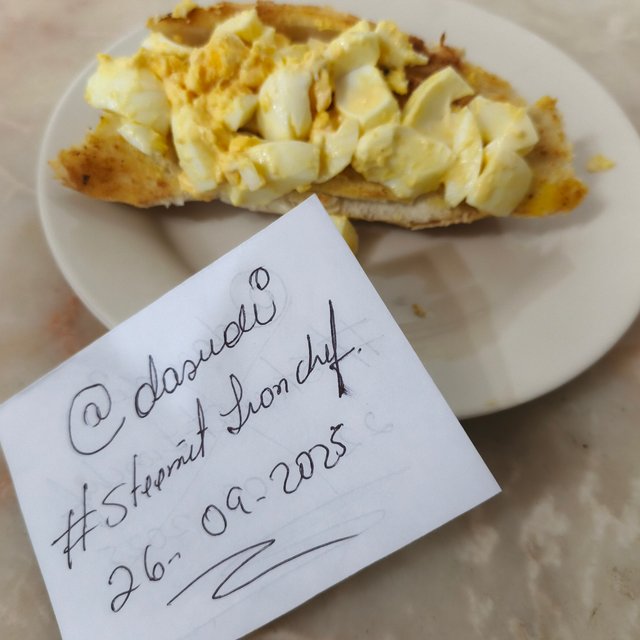 @dasudi
#Steemit Iron chef.
26-09-2025